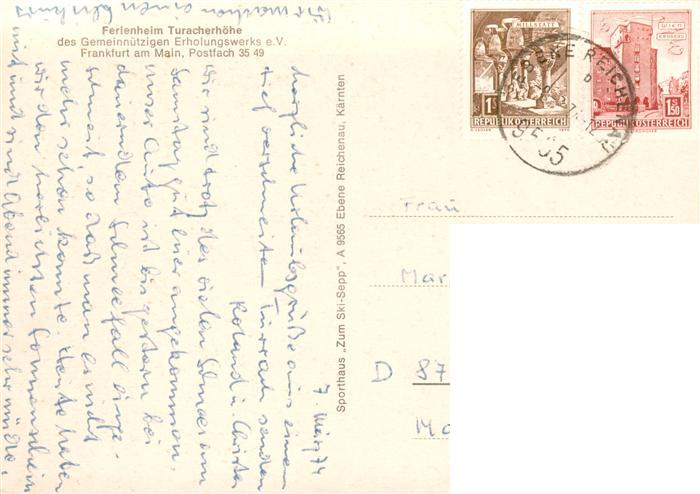 Ferienheim Turacherhöhe
des Gemeinnützigen Erholungswerks e.V.
Frankfurt am Main, Postfach 35 49
7. März 74
Herzliche Urlaubsgrüße aus einem
tief verschneiten Turrach senden
Roland u. Christa
Wir sind trotz des vielen Schnees am
Samstag gut hier angekommen.
unser Auto ist bis gestern bei
dauerndem Schneefall einge-
schneit so daß man es nicht
mehr sehen konnte. Heute haben
wir den herrlichsten Sonnenschein
und sind Abend immer sehr müde.
Wir machen einen
Sporthaus „Zum Ski-Sepp", A 9565 Ebene Reichenau, Kärnten
MILLSTATT
1S
REPUBLIK ÖSTERREICH
WIEN
ERDBERG
1S50
REPUBLIK ÖSTERREICH
EBENE REICHENAU
9565
Frau
Mar
D 87
Ma